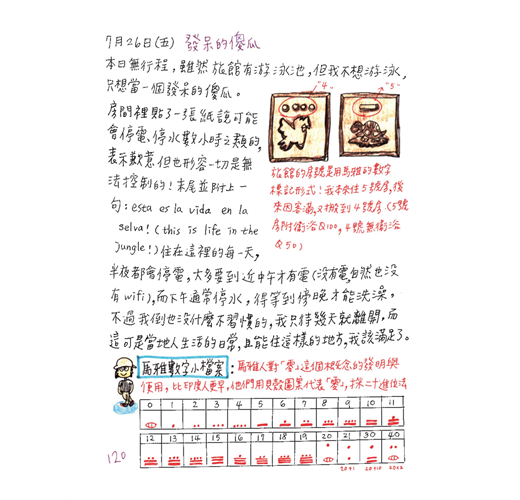 7月26日(五) 發呆的傻瓜
本日無行程，雖然旅館有游泳池，但我不想游泳，
只想當一個發呆的傻瓜。
房間裡貼了一張紙說可能
會停電、停水數小時之類的，
表示歉意但也形容一切是無
法控制的！末尾並附上一
句：esta es la vida en la
selva! (this is life in the
jungle!) 住在這裡的每一天，
"4"
"5"
旅館的房號是用馬雅的數字
標記形式！我本來住5號房，後
來因客滿，又搬到4號房（5號
房附衛浴Q100，4號無衛浴
Q50）
半夜都會停電，大多要到近中午才有電(沒有電，自然也沒
有wifi)，而下午通常停水，得等到傍晚才能洗澡，
不過我倒也沒什麼不習慣的，我只待幾天就離開，而
這可是當地人生活的日常，且能住這樣的地方，我該滿足了。
馬雅數字小檔案：馬雅人對「零」這個概念的發明與
使用，比印度人更早，他們用貝殼圖案代表「零」，採二十進位法
0 1 2 3 4 5 6 7 8 9 10 11
12 13 14 15 16 17 18 19 20 21 30 40
20x1 20x1+10 20x2
120